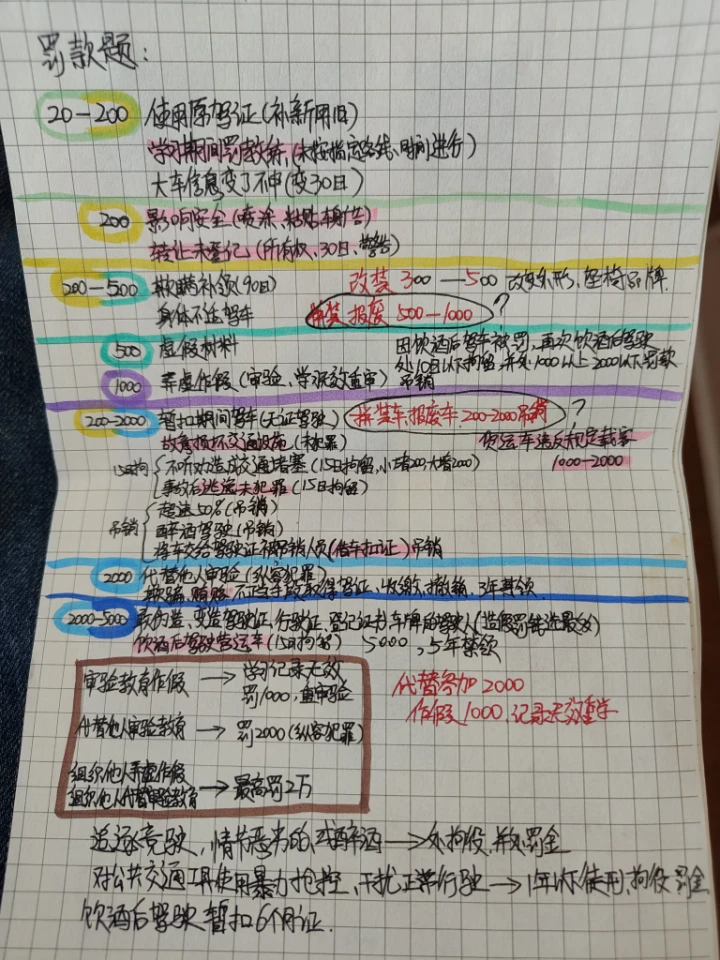 罚款题:
20-200 使用原驾证(补新用旧)
学习期间罚教练(未按指定路线、时间进行)
大车信息变了不申(变30日)
200 影响安全(喷涂、粘贴车身广告)
转让未登记(所有权、30日、警告)
200-500 欺瞒补领(90日) 改装 300-500 改变外形、座椅品牌
身体不适驾车 拼装 报废 500-1000 ?
500 虚假材料 因饮酒后驾车被罚,再次饮酒后驾驶
处10日以下拘留,并处1000以上2000以下罚款
1000 弄虚作假(审验、学习无效重审) 吊销
200-2000 暂扣期间驾车(无证驾驶) 拼装车、报废车 200-2000吊销 ?
故意损坏交通设施(未犯罪) 货运车违反规定载客
15日拘 不听劝造成交通堵塞(15日拘留,小堵200,大堵2000) 1000-2000
事故后逃逸未犯罪(15日拘留)
吊销 超速50%(吊销)
醉酒驾驶(吊销)
将车交给驾驶证被吊销人员(借车扣证)吊销
2000 代替他人审验(纵容犯罪)
欺骗、贿赂不正手段取得驾证、收缴、撤销、3年禁领
2000-5000 伪造、变造驾驶证、行驶证、登记证书、车牌的驾驶人(造假罚钱选最多)
饮酒后驾驶营运车(15日拘留) 5000,5年禁领
审验教育作假→学习记录无效
罚1000,重审验
代替参加2000
作假1000、记录无效重学
代替他人审验教育→罚2000(纵容犯罪)
组织他人弄虚作假
组织他人代替审验教育→最高罚2万
追逐竞驶,情节恶劣的,或醉酒→处拘役,并处罚金
对公共交通工具使用暴力抢控、干扰正常行驶→1年以下徒刑、拘役 罚金
饮酒后驾驶 暂扣6个月证.